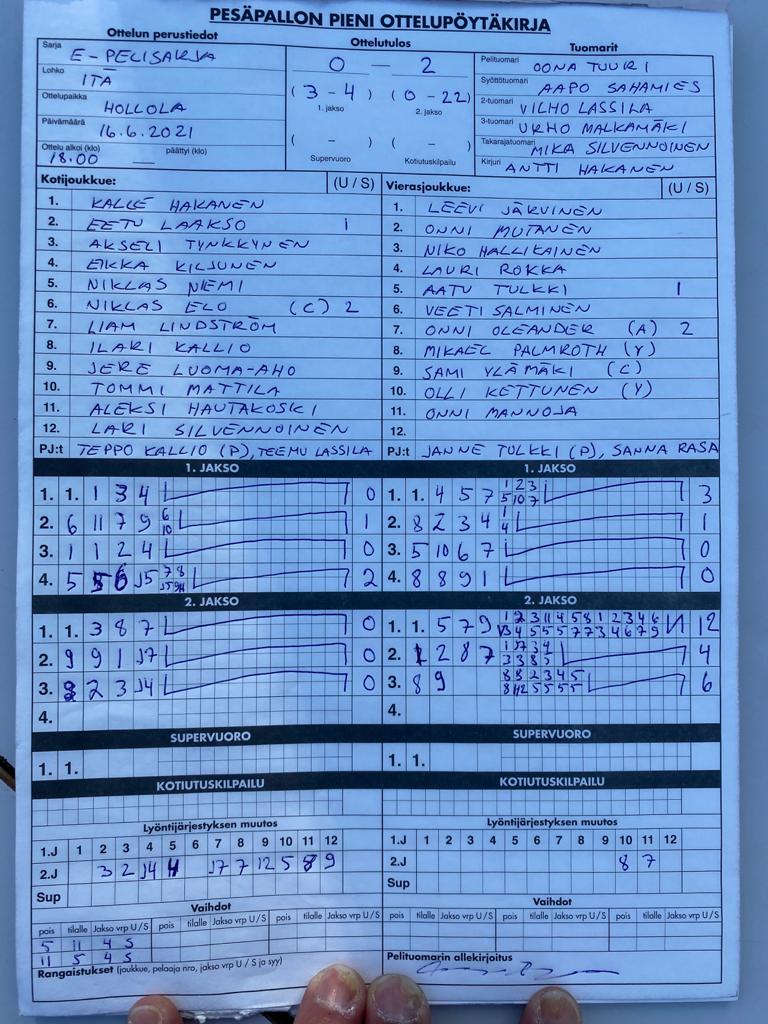 PESÄPALLON PIENI OTTELUPÖYTÄKIRJA
Ottelun perustiedot
Sarja E-PELISARJA
Lohko ITÄ
Ottelupaikka HOLLOLA
Päivämäärä 16.6.2021
Ottelu alkoi (klo) 18.00 päättyi (klo)
Ottelutulos
0 – 2
(3 - 4) (0 - 22)
1. jakso 2. jakso
( - ) ( - )
Supervuoro Kotiutuskilpailu
Tuomarit
Pelituomari OONA TUURI
Syöttötuomari AAPO SAHAMIES
2-tuomari VILHO LASSILA
3-tuomari URHO MALKAMÄKI
Takarajatuomari MIKA SILVENNOINEN
Kirjuri ANTTI HAKANEN
Kotijoukkue: (U / S)
1. KALLE HAKANEN
2. EETU LAAKSO 1
3. AKSELI TYNKKYNEN
4. EIKKA KILJUNEN
5. NIKLAS NIEMI
6. NIKLAS ELO (C) 2
7. LIAM LINDSTRÖM
8. ILARI KALLIO
9. JERE LUOMA-AHO
10. TOMMI MATTILA
11. ALEKSI HAUTAKOSKI
12. LARI SILVENNOINEN
PJ:t TEPPO KALLIO (P), TEEMU LASSILA
Vierasjoukkue: (U / S)
1. LEEVI JÄRVINEN
2. ONNI MUTANEN
3. NIKO HALLIKAINEN
4. LAURI ROKKA
5. AATU TULKKI 1
6. VEETI SALMINEN
7. ONNI OLEANDER (A) 2
8. MIKAEL PALMROTH (Y)
9. SAMI YLÄMÄKI (C)
10. OLLI KETTUNEN (Y)
11. ONNI MANNOJA
12.
PJ:t JANNE TULKKI (P), SANNA RASA
1. JAKSO
1. 1. 1 3 4 0
2. 6 11 7 9 6 10 1
3. 1 1 2 4 0
4. 5 2
1. JAKSO
1. 1. 4 5 7 1 2 3 5 10 7 3
2. 8 2 3 4 1 4 1
3. 5 10 6 7 0
4. 8 8 9 1 0
2. JAKSO
1. 1. 3 8 7 0
2. 9 9 1 0
3. 2 3 0
4.
2. JAKSO
1. 1. 5 7 9 12
2. 2 8 7 4
3. 8 9 6
4.
SUPERVUORO
1. 1.
SUPERVUORO
1. 1.
KOTIUTUSKILPAILU
KOTIUTUSKILPAILU
Lyöntijärjestyksen muutos
1.J 1 2 3 4 5 6 7 8 9 10 11 12
2.J 3 2 7 12 5 8 9
Sup
Lyöntijärjestyksen muutos
1.J 1 2 3 4 5 6 7 8 9 10 11 12
2.J 8 7
Sup
Vaihdot
pois tilalle Jakso vrp U / S pois tilalle Jakso vrp U / S pois tilalle Jakso vrp U / S
5 11 4 5
11 5 4 5
Rangaistukset (joukkue, pelaaja nro, jakso vrp U / S ja syy)
Vaihdot
pois tilalle Jakso vrp U / S pois tilalle Jakso vrp U / S pois tilalle Jakso vrp U / S
Pelituomarin allekirjoitus